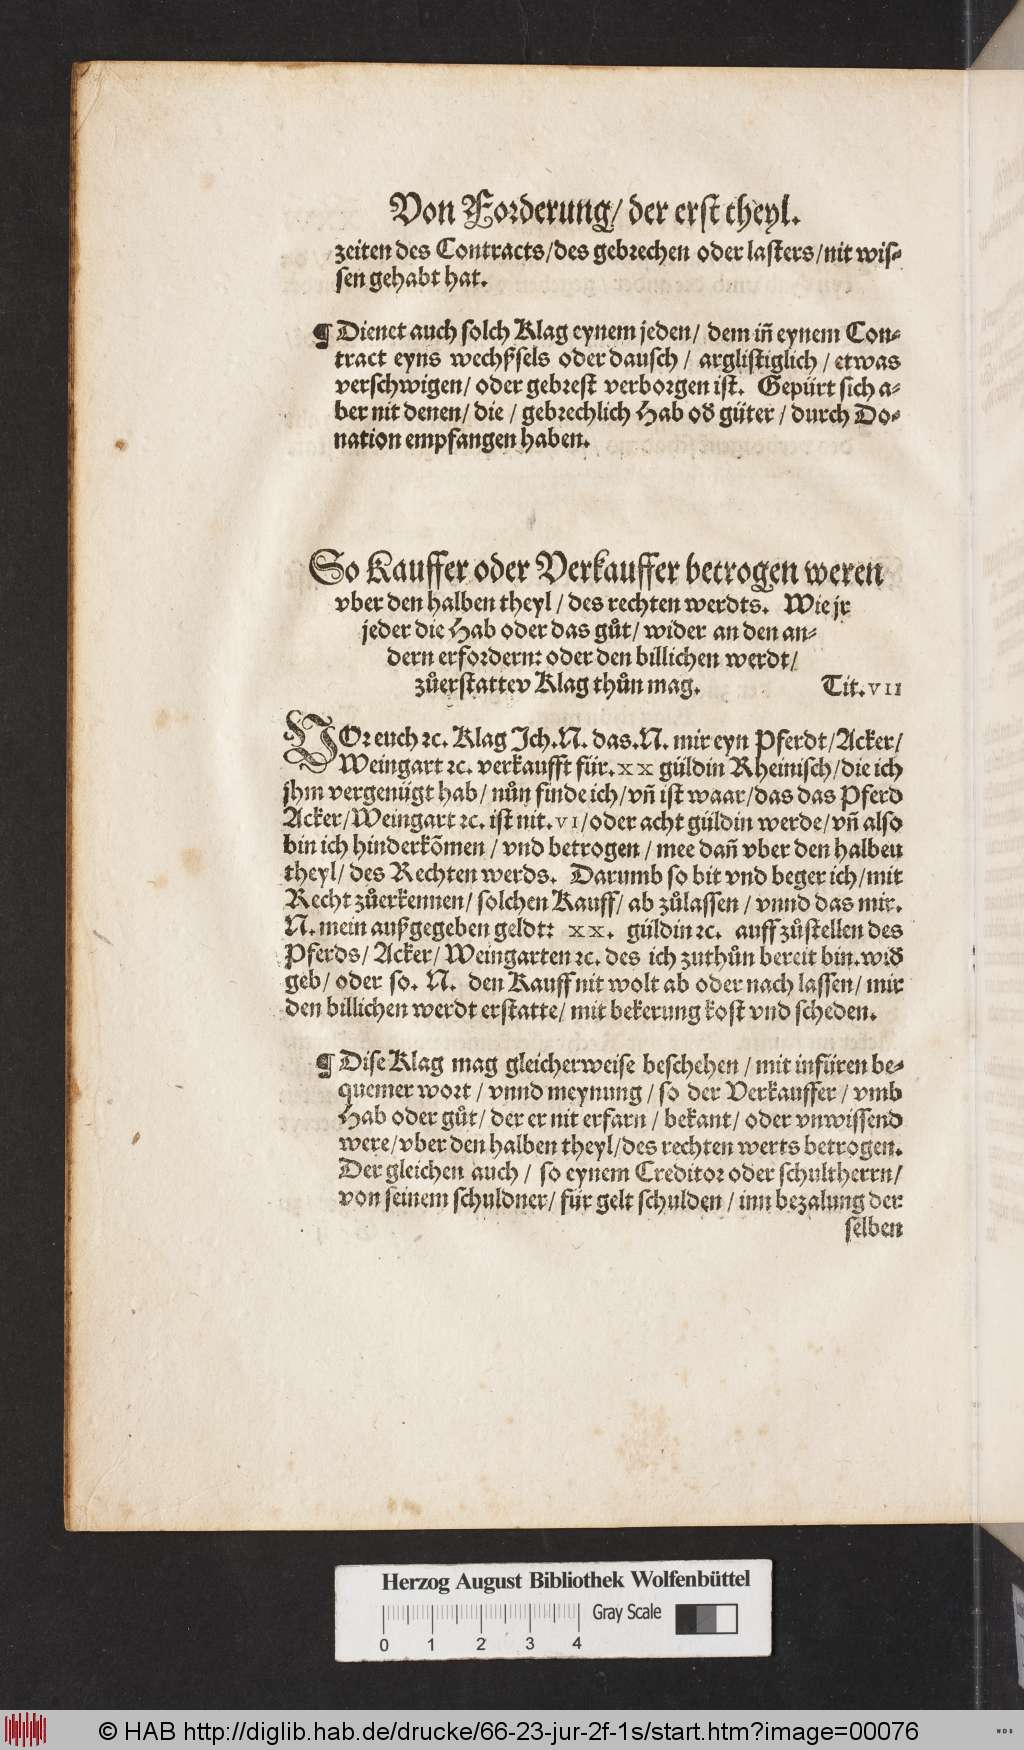 Von Forderung/ der erst theyl.
zeiten des Contracts/des gebrechen oder lasters/nit wis⸗
sen gehabt hat.
¶ Dienet auch solch Klag eynem jeden/ dem iñ eynem Con⸗
tract eyns wechßsels oder dausch / arglistiglich / etwas
verschwigen/ oder gebrest verborgen ist. Gepürt sich a⸗
ber nit denen/ die / gebrechlich Hab oď güter / durch Do⸗
nation empfangen haben.
So Kauffer oder Verkauffer betrogen weren
vber den halben theyl / des rechten werdts. Wie jr
jeder die Hab oder das gůt/ wider an den an⸗
dern erfordern: oder den billichen werdt/
zůerstattev Klag thůn mag. Tit. VII
VOr euch ꝛc. Klag Ich. N. das. N. mir eyn Pferdt/Acker/
Weingart ꝛc. verkaufft für. XX güldin Rheinisch/die ich
jhm vergenügt hab/ nůn finde ich/vñ ist waar/das das Pferd
Acker/Weingart ꝛc. ist nit. VI/oder acht güldin werde/vñ also
bin ich hinderkõmen / vnd betrogen / mee dañ vber den halbeu
theyl/ des Rechten werds. Darumb so bit vnd beger ich/mit
Recht zůerkennen/ solchen Kauff/ ab zůlassen / vnnd das mir.
N. mein außgegeben geldt: XX. güldin ꝛc. auff zůstellen des
Pferds/ Acker/ Weingarten ꝛc. des ich zuthůn bereit bin. wiď
geb/ oder so. N. den Kauff nit wolt ab oder nach lassen/ mir
den billichen werdt erstatte/ mit bekerung kost vnd scheden.
¶ Dise Klag mag gleicherweise beschehen / mit infüren be⸗
quemer wort / vnnd meynung / so der Verkauffer / vmb
Hab oder gůt/ der er nit erfarn / bekant/ oder vnwissend
were/vber den halben theyl/des rechten werts betrogen.
Der gleichen auch / so eynem Creditor oder schultherrn/
von seinem schuldner/ für gelt schulden / inn bezalung der
selben
Herzog August Bibliothek Wolfenbüttel
Gray Scale
0 1 2 3 4
© HAB http://diglib.hab.de/drucke/66-23-jur-2f-1s/start.htm?image=00076